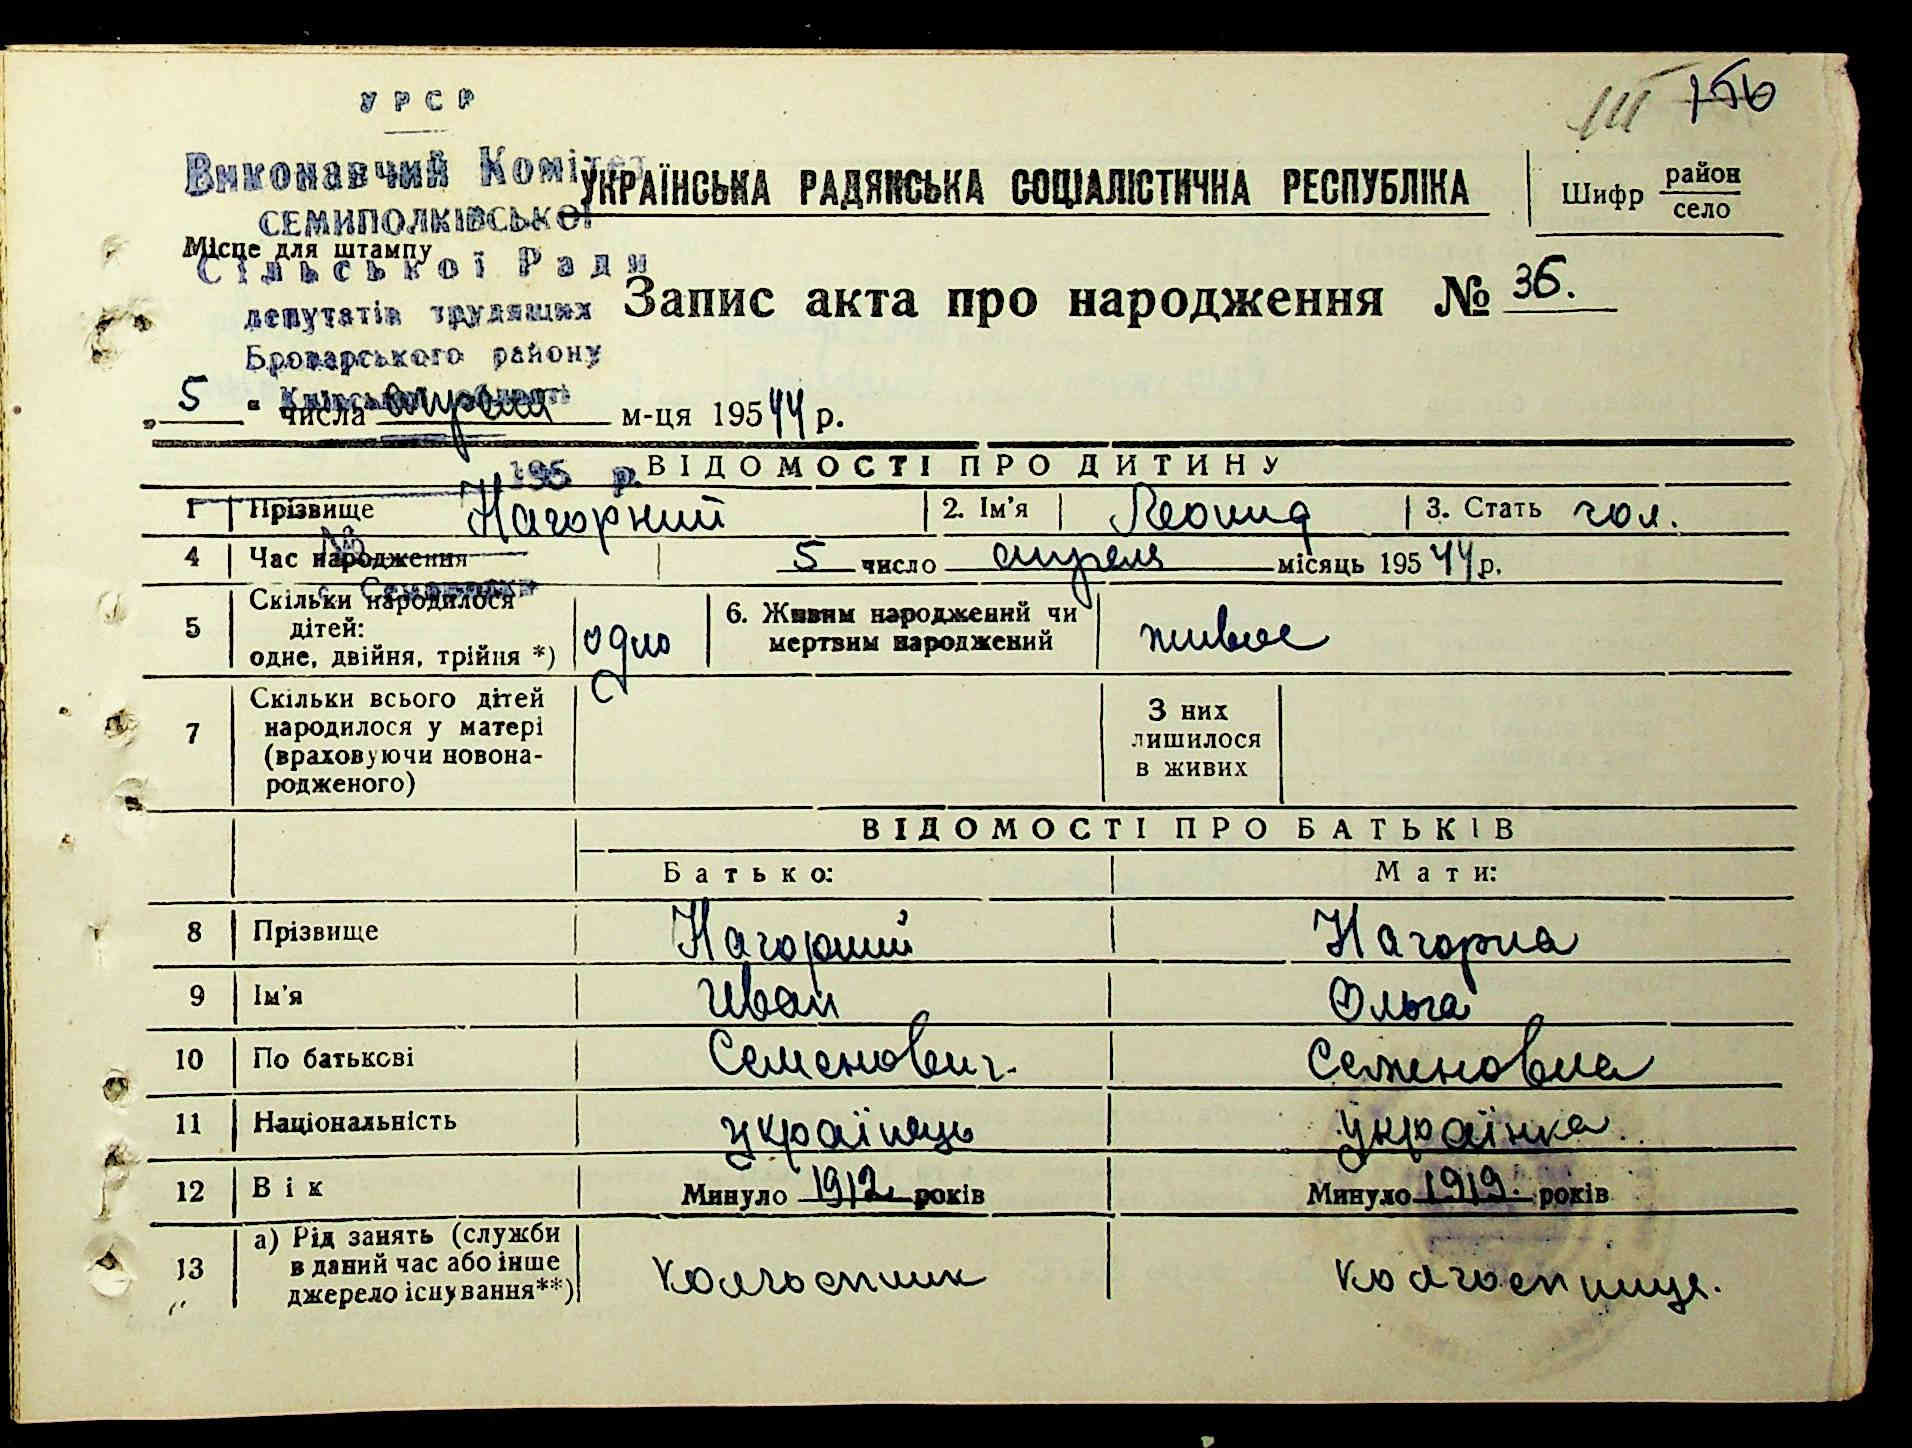 УРСР
Виконавчий Комітет
СЕМИПОЛКІВСЬКОЇ
Місце для штампу
Сільської Ради
депутатів трудящих
Броварського району
Київської області
195 р.
№
УКРАЇНСЬКА РАДЯНСЬКА СОЦІАЛІСТИЧНА РЕСПУБЛІКА
III 156
Шифр район
село
Запис акта про народження № 36.
„5" числа апреля м-ця 195 44 р.
ВІДОМОСТІ ПРО ДИТИНУ
1 Прізвище Нагорний 2. Ім'я Леонид 3. Стать чол.
4 Час народження 5 число апреля місяць 195 44 р.
5 Скільки народилося дітей: одне, двійня, трійня *) одно 6. Живим народжений чи мертвим народжений живое
7 Скільки всього дітей народилося у матері (враховуючи новона-родженого) З них лишилося в живих
ВІДОМОСТІ ПРО БАТЬКІВ
Батько: Мати:
8 Прізвище Нагорний Нагорна
9 Ім'я Иван Ольга
10 По батькові Семенович. Семеновна
11 Національність українець українка
12 Вік Минуло 1912 років Минуло 1919. років
13 а) Рід занять (служби в даний час або інше джерело існування**) колгоспник колгоспниця.